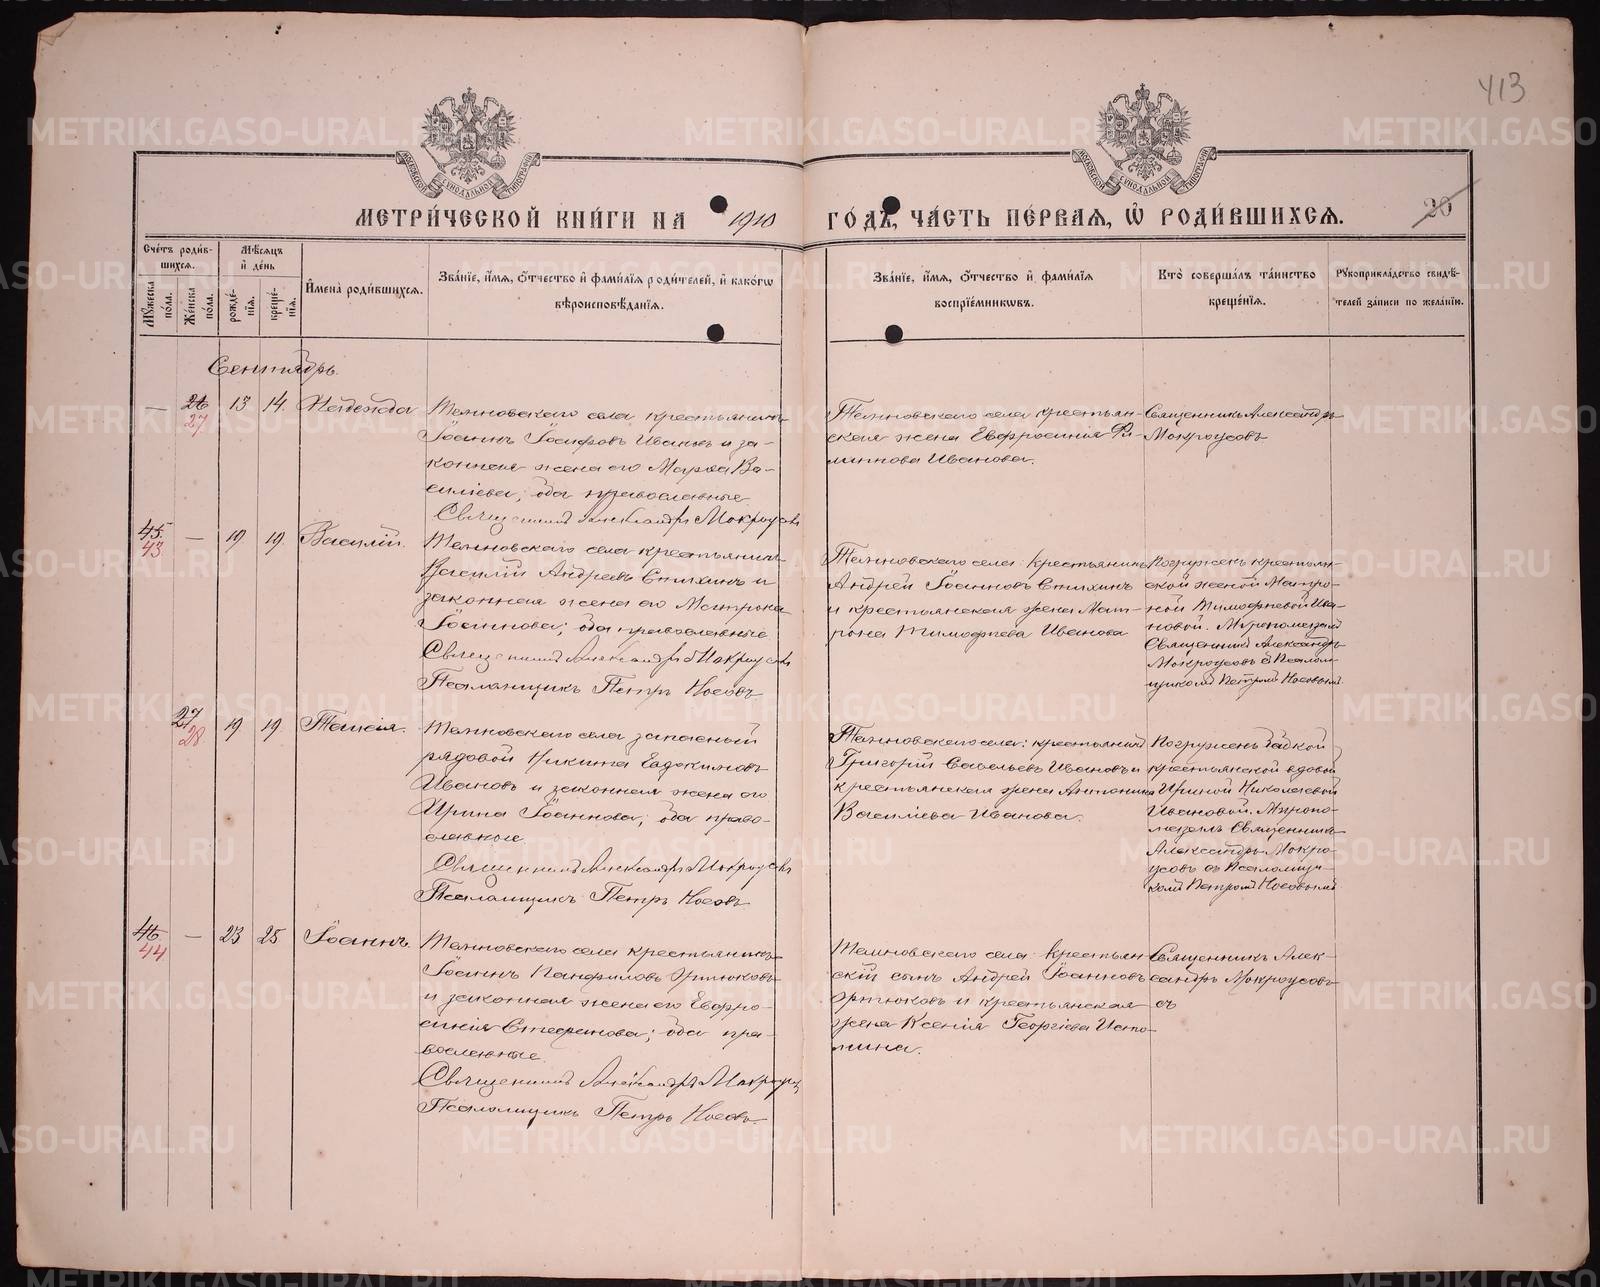 413
МОСКОВСКОЙ СѴНОДАЛЬНОЙ ТИПОГРАФІИ
МОСКОВСКОЙ СѴНОДАЛЬНОЙ ТИПОГРАФІИ
МЕТРИ́ЧЕСКОЙ КНИ́ГИ НА 1910 ГО́ДЪ, ЧА́СТЬ ПЕ́РВАЯ, Ѡ҆ РОДИ́ВШИХСЯ. 20
Сче́тъ роди́в-
шихся.
Му́жеска по́ла.
Же́нска по́ла.
Мѣ́сяцъ
и҆ де́нь
рожде́-
нїя.
креще́-
нїя.
И҆мена̀ роди́вшихся.
Зва́нїе, и҆́мя, ѻ҆́тчество и҆ фами́лїя роди́телей, и҆ како́гѡ
вѣроисповѣ́данїя.
Зва́нїе, и҆́мя, ѻ҆́тчество и҆ фами́лїя
воспрїе́мникѡвъ.
Кто̀ соверша́лъ та́инство
креще́нїя.
Рꙋкоприкла́дство свидѣ́-
телей за́писи по жела́нїю.
Сентябрь.
— 26 27 13 14. Надежда
Темновскаго села крестьянинъ
Іоаннъ Іосифовъ Ивановъ и за-
конная жена его Марѳа Ва-
силіева; оба православные
Священникъ Александръ Мокроусовъ
Темновскаго села крестьян-
ская жена Евфросинія Фи-
липпова Иванова.
Священникъ Александръ
Мокроусовъ
45. 43 — 19 19. Василій.
Темновскаго села крестьянинъ
Василій Андреевъ Стяхинъ и
законная жена его Матрона
Іоаннова; оба православные
Священникъ Александръ Мокроусовъ
Псаломщикъ Петръ Носовъ
Темновскаго села: крестьянинъ
Андрей Іоанновъ Стяхинъ
и крестьянская жена Мат-
рона Тимофѣева Иванова
Погруженъ крестьян-
ской женой Матро-
ной Тимофѣевой Ива-
новой. Мѵропомазалъ
Священникъ Александръ
Мокроусовъ съ Псалом-
щикомъ Петромъ Носовымъ.
27 28 19 19. Таисія.
Темновскаго села запасный
рядовой Никита Евдокимовъ
Ивановъ и законная жена его
Ирина Іоаннова; оба право-
славные.
Священникъ Александръ Мокроусовъ
Псаломщикъ Петръ Носовъ.
Темновскаго села: крестьянинъ
Григорій Савельевъ Ивановъ и
крестьянская жена Антонина
Василіева Иванова.
Погруженъ бабкой
крестьянской вдовой
Ириной Николаевой
Ивановой. Мѵропо-
мазалъ Священникъ
Александръ Мокро-
усовъ съ Псаломщи-
комъ Петромъ Носовымъ
46. 44 — 23 25 Іоаннъ.
Темновскаго села крестьянинъ
Іоаннъ Панфиловъ Ортюковъ
и законная жена его Евфро-
синія Стефанова; оба пра-
вославные.
Священникъ Александръ Мокроусовъ
Псаломщикъ Петръ Носовъ.
Темновскаго села: крестьян-
скій сынъ Андрей Іоанновъ
Ортюковъ и крестьянская
жена Ксенія Георгіева Исто-
мина.
Священникъ Алек-
сандръ Мокроусовъ
съ
METRIKI.GASO-URAL.RU